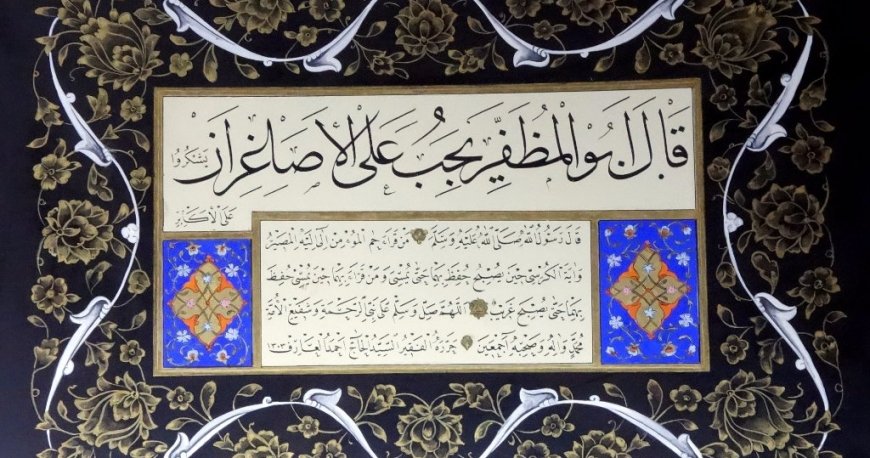 قَالَ اَبُو الْمُظَفَّرِ يَجِبُ عَلَى الْاَصَاغِرِ اَنْ يَشْكُرُوا
عَلَى الْاَكَابِرِ
قَالَ رَسُولُ اللّٰهِ صَلَّى اللّٰهُ عَلَيْهِ وَسَلَّمَ مَنْ قَرَأَ حٰم الْمُؤْمِنَ اِلٰى اِلَيْهِ الْمَصِيرُ
وَاٰيَةَ الْكُرْسِيِّ حِينَ يُصْبِحُ حُفِظَ بِهِمَا حَتّٰى يُمْسِىَ وَمَنْ قَرَأَ بِهِمَا حِينَ يُمْسِى حُفِظَ
بِهِمَا حَتّٰى يُصْبِحَ غَرِيبٌ اَللّٰهُمَّ صَلِّ وَسَلِّمْ عَلٰى نَبِيِّ الرَّحْمَةِ وَشَفِيعِ الْاُمَّةِ
مُحَمَّدٍ وَاٰلِهِ وَصَحْبِهِ اَجْمَعِينَ حَرَّرَهُ الْفَقِيرُ السَّيِّدُ الْحَاجُّ اَحْمَدُ الْعَارِف ١٣٠٣